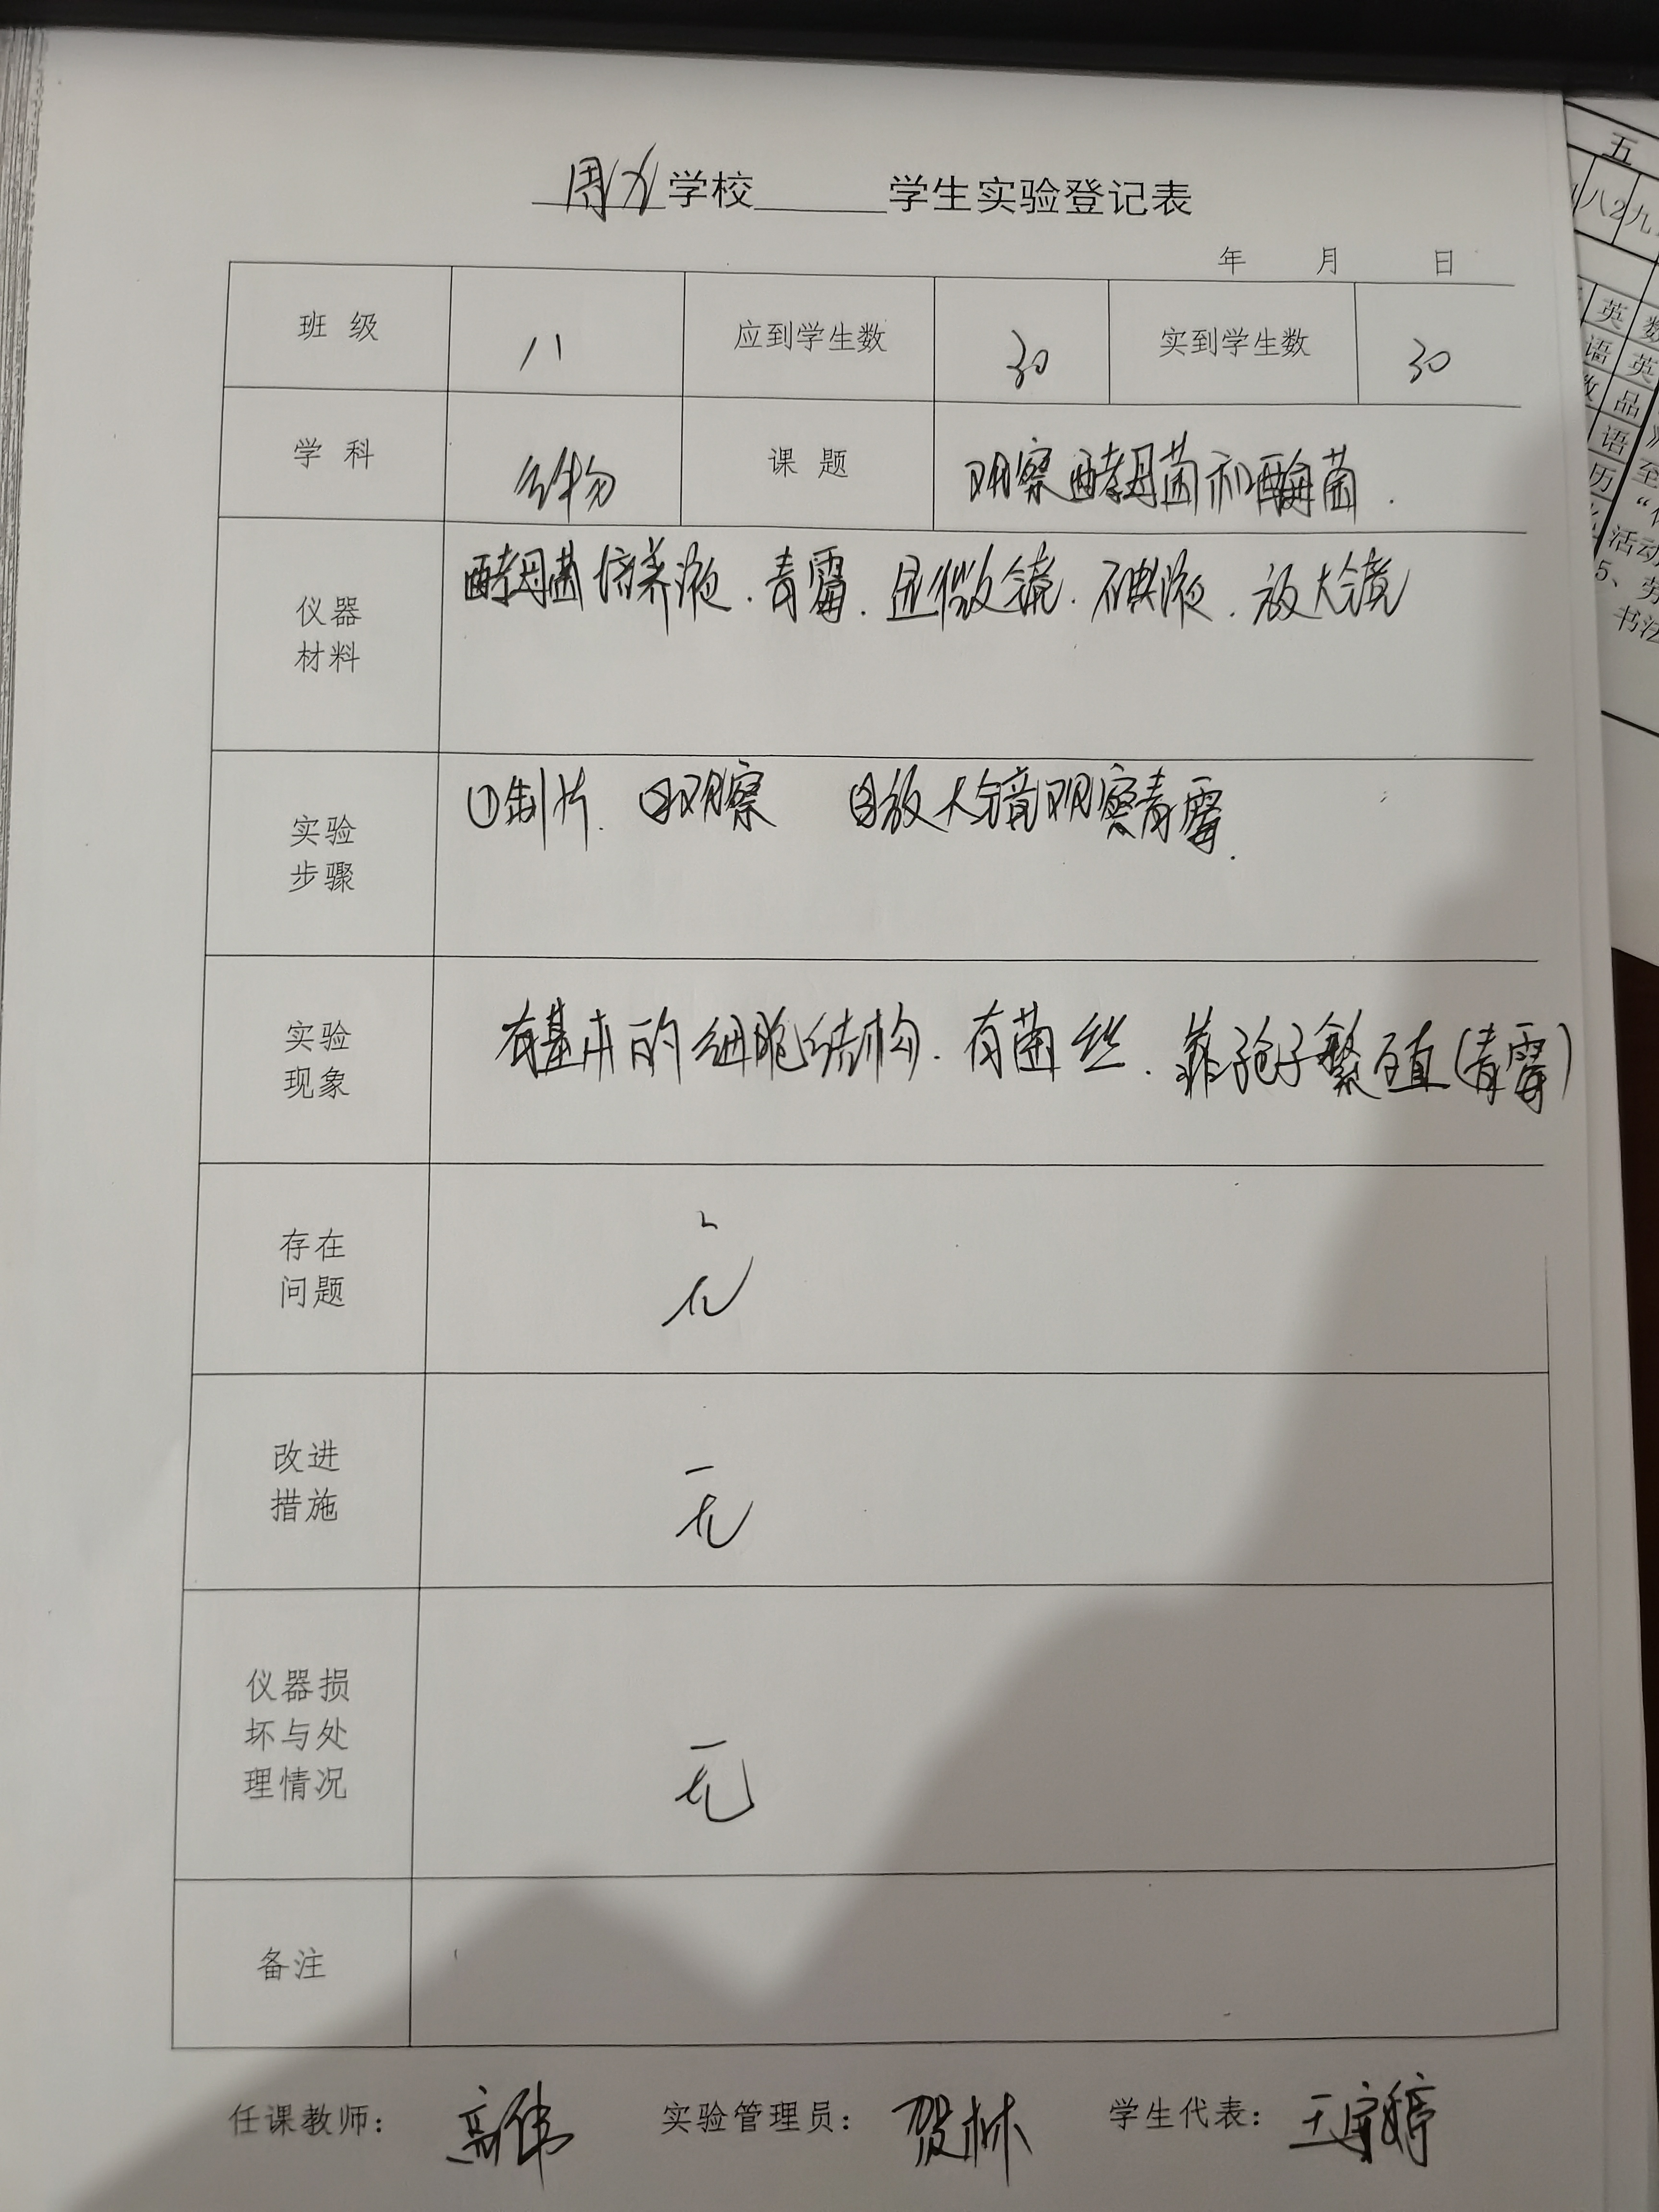 周力学校______学生实验登记表
年 月 日
班 级 八 应到学生数 30 实到学生数 30
学 科 生物 课 题 观察酵母菌和酶菌.
仪器
材料
酵母菌培养液.青霉.显微镜.碘液.放大镜
实验
步骤
①制片. ②观察 ③放大镜观察青霉.
实验
现象
有基本的细胞结构.有菌丝.靠孢子繁殖(青霉)
存在
问题
无
改进
措施
无
仪器损
坏与处
理情况
无
备注
任课教师: 高伟 实验管理员: 贺林 学生代表: 王宇婷
五
八2 九
英 数
语 英
品
语
历 至
活动
5、劳
书法